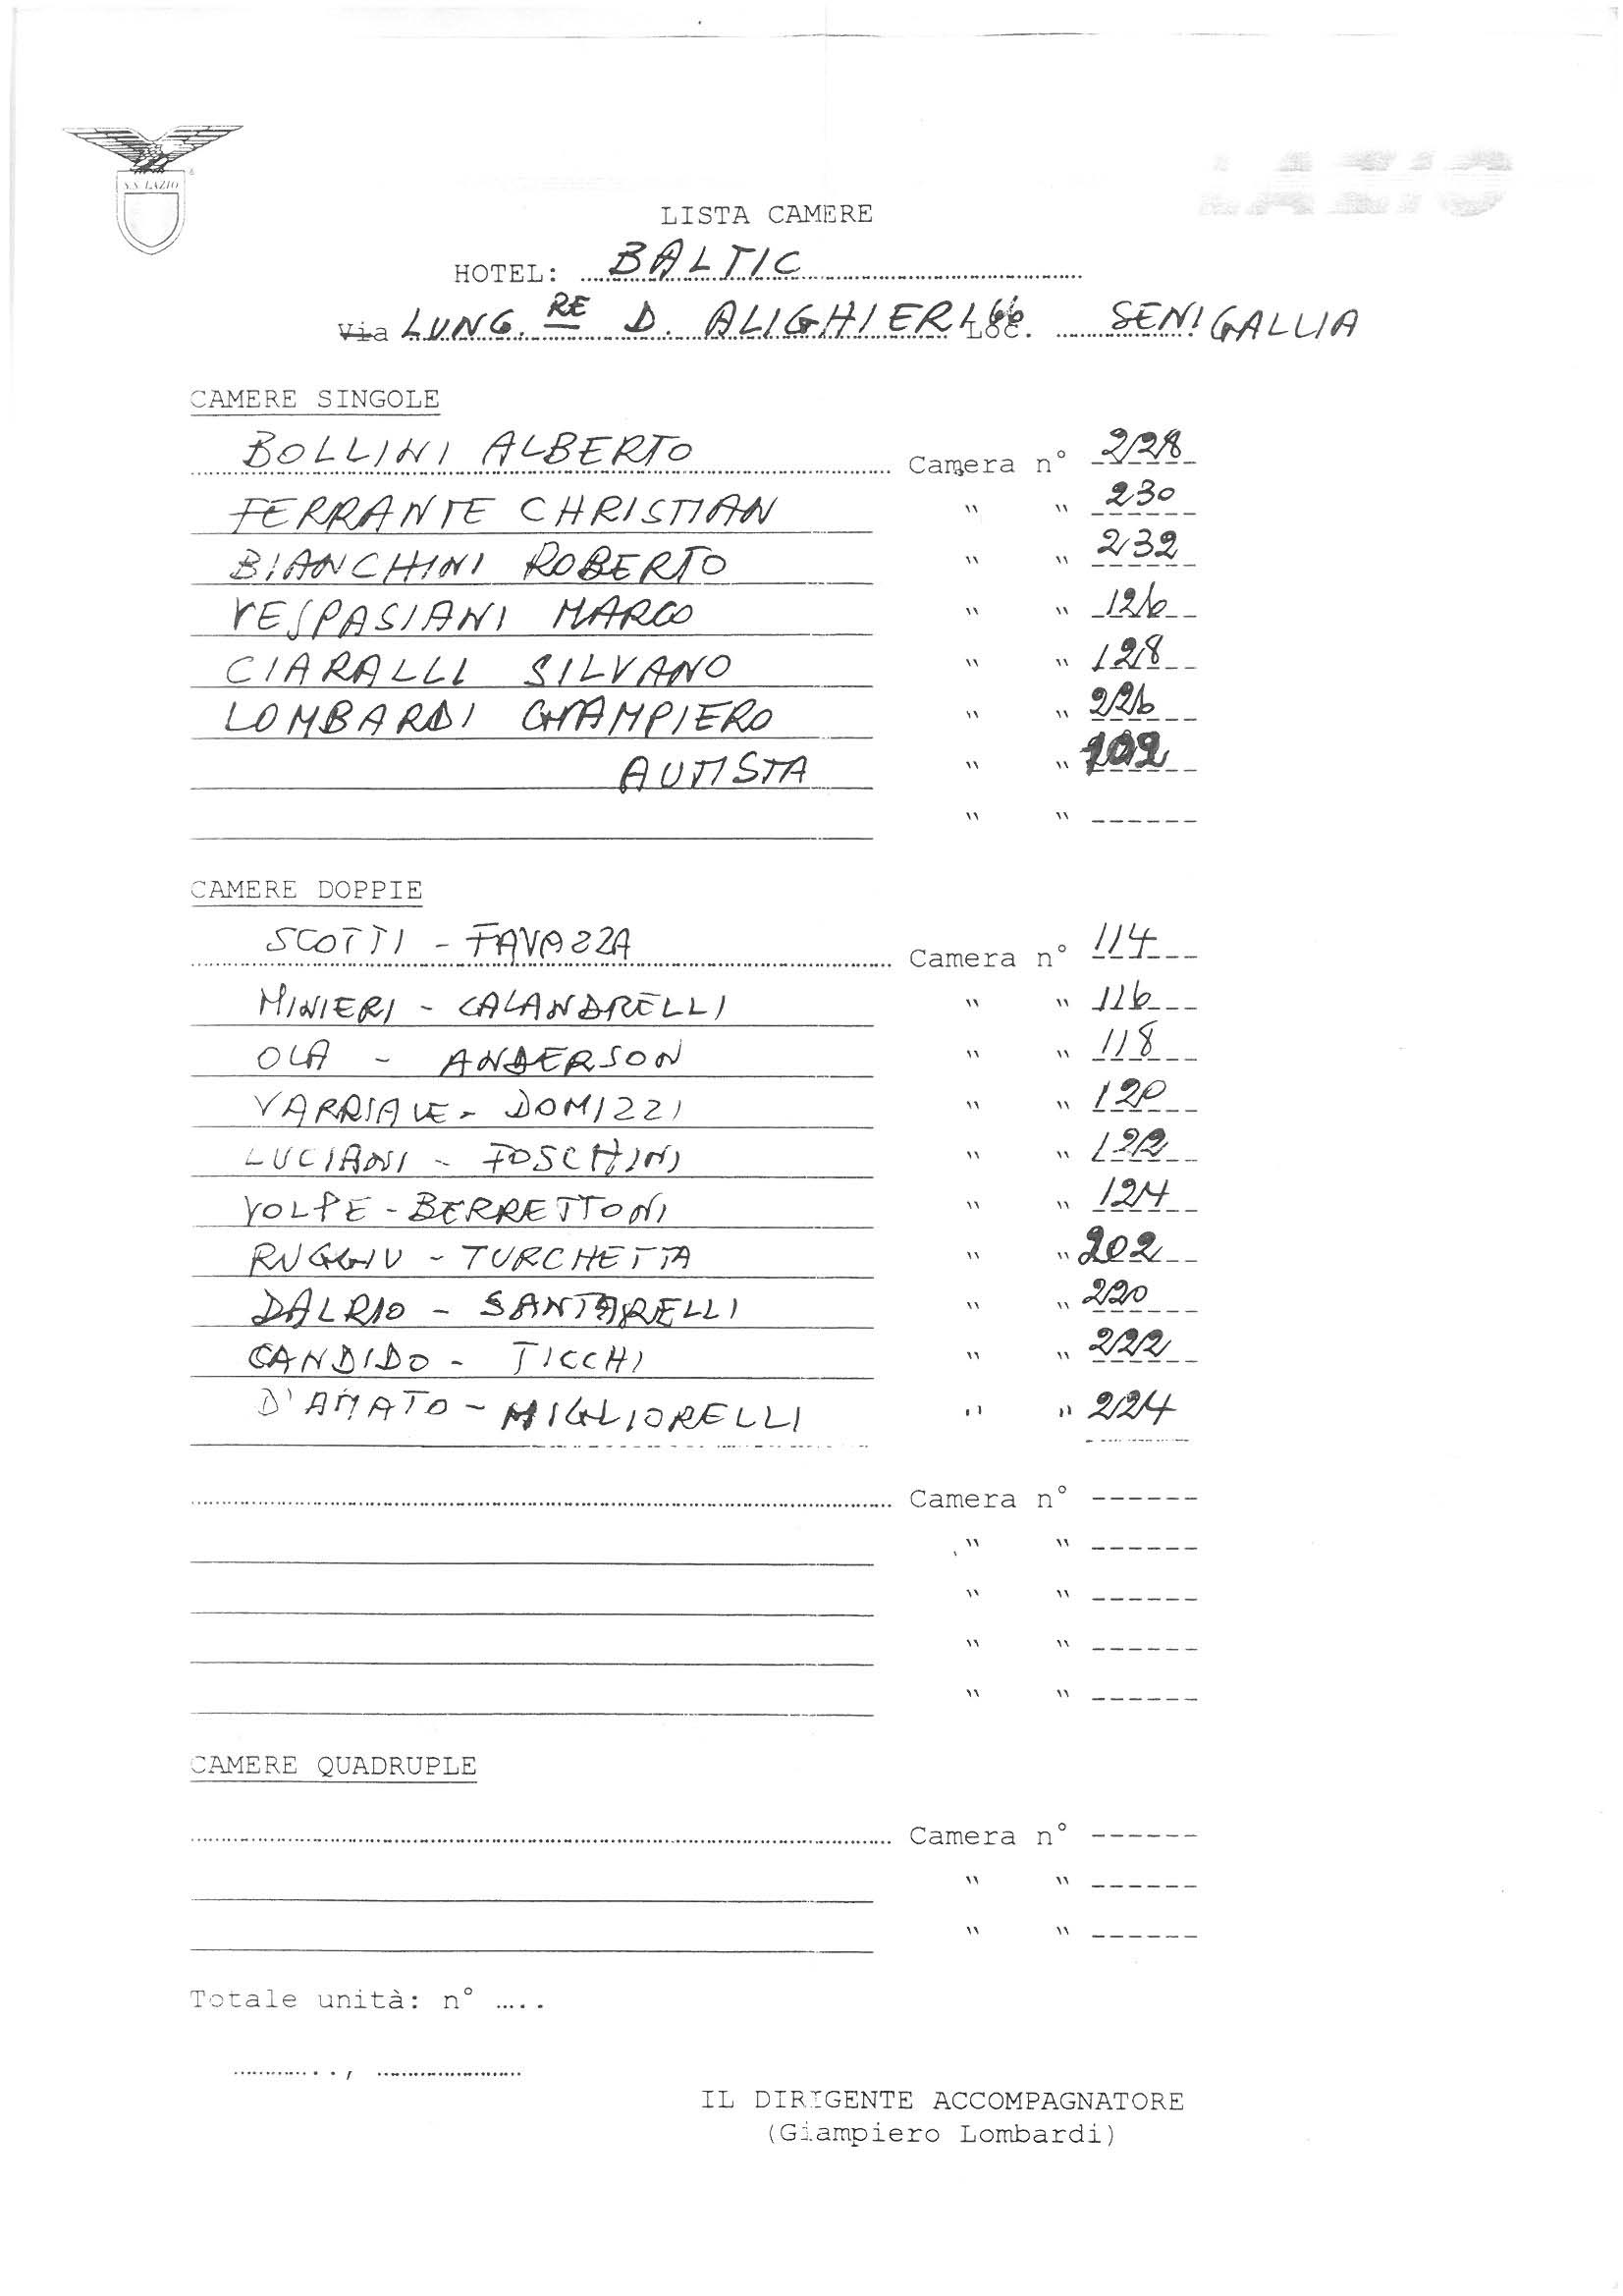 S.S. LAZIO
LAZIO
LISTA CAMERE
HOTEL: BALTIC
Via LUNG.RE D. ALIGHIERI 66 Loc. SENIGALLIA
CAMERE SINGOLE
BOLLINI ALBERTO Camera n° 228
FERRANTE CHRISTIAN " " 230
BIANCHINI ROBERTO " " 232
VESPASIANI MARCO " " 126
CIARALLI SILVANO " " 128
LOMBARDI GIAMPIERO " " 226
AUTISTA " " 102
" "
CAMERE DOPPIE
SCOTTI - FAVAZZA Camera n° 114
MINIERI - CALANDRELLI " " 116
OLA - ANDERSON " " 118
VARRIALE - DOMIZZI " " 120
LUCIANI - FOSCHINI " " 122
VOLPE - BERRETTONI " " 124
RUGGIU - TURCHETTA " " 202
DALRIO - SANTARELLI " " 220
CANDIDO - TICCHI " " 222
D'AMATO - MIGLIORELLI " " 224
Camera n°
" "
" "
" "
" "
CAMERE QUADRUPLE
Camera n°
" "
" "
Totale unità: n° .....
IL DIRIGENTE ACCOMPAGNATORE
(Giampiero Lombardi)